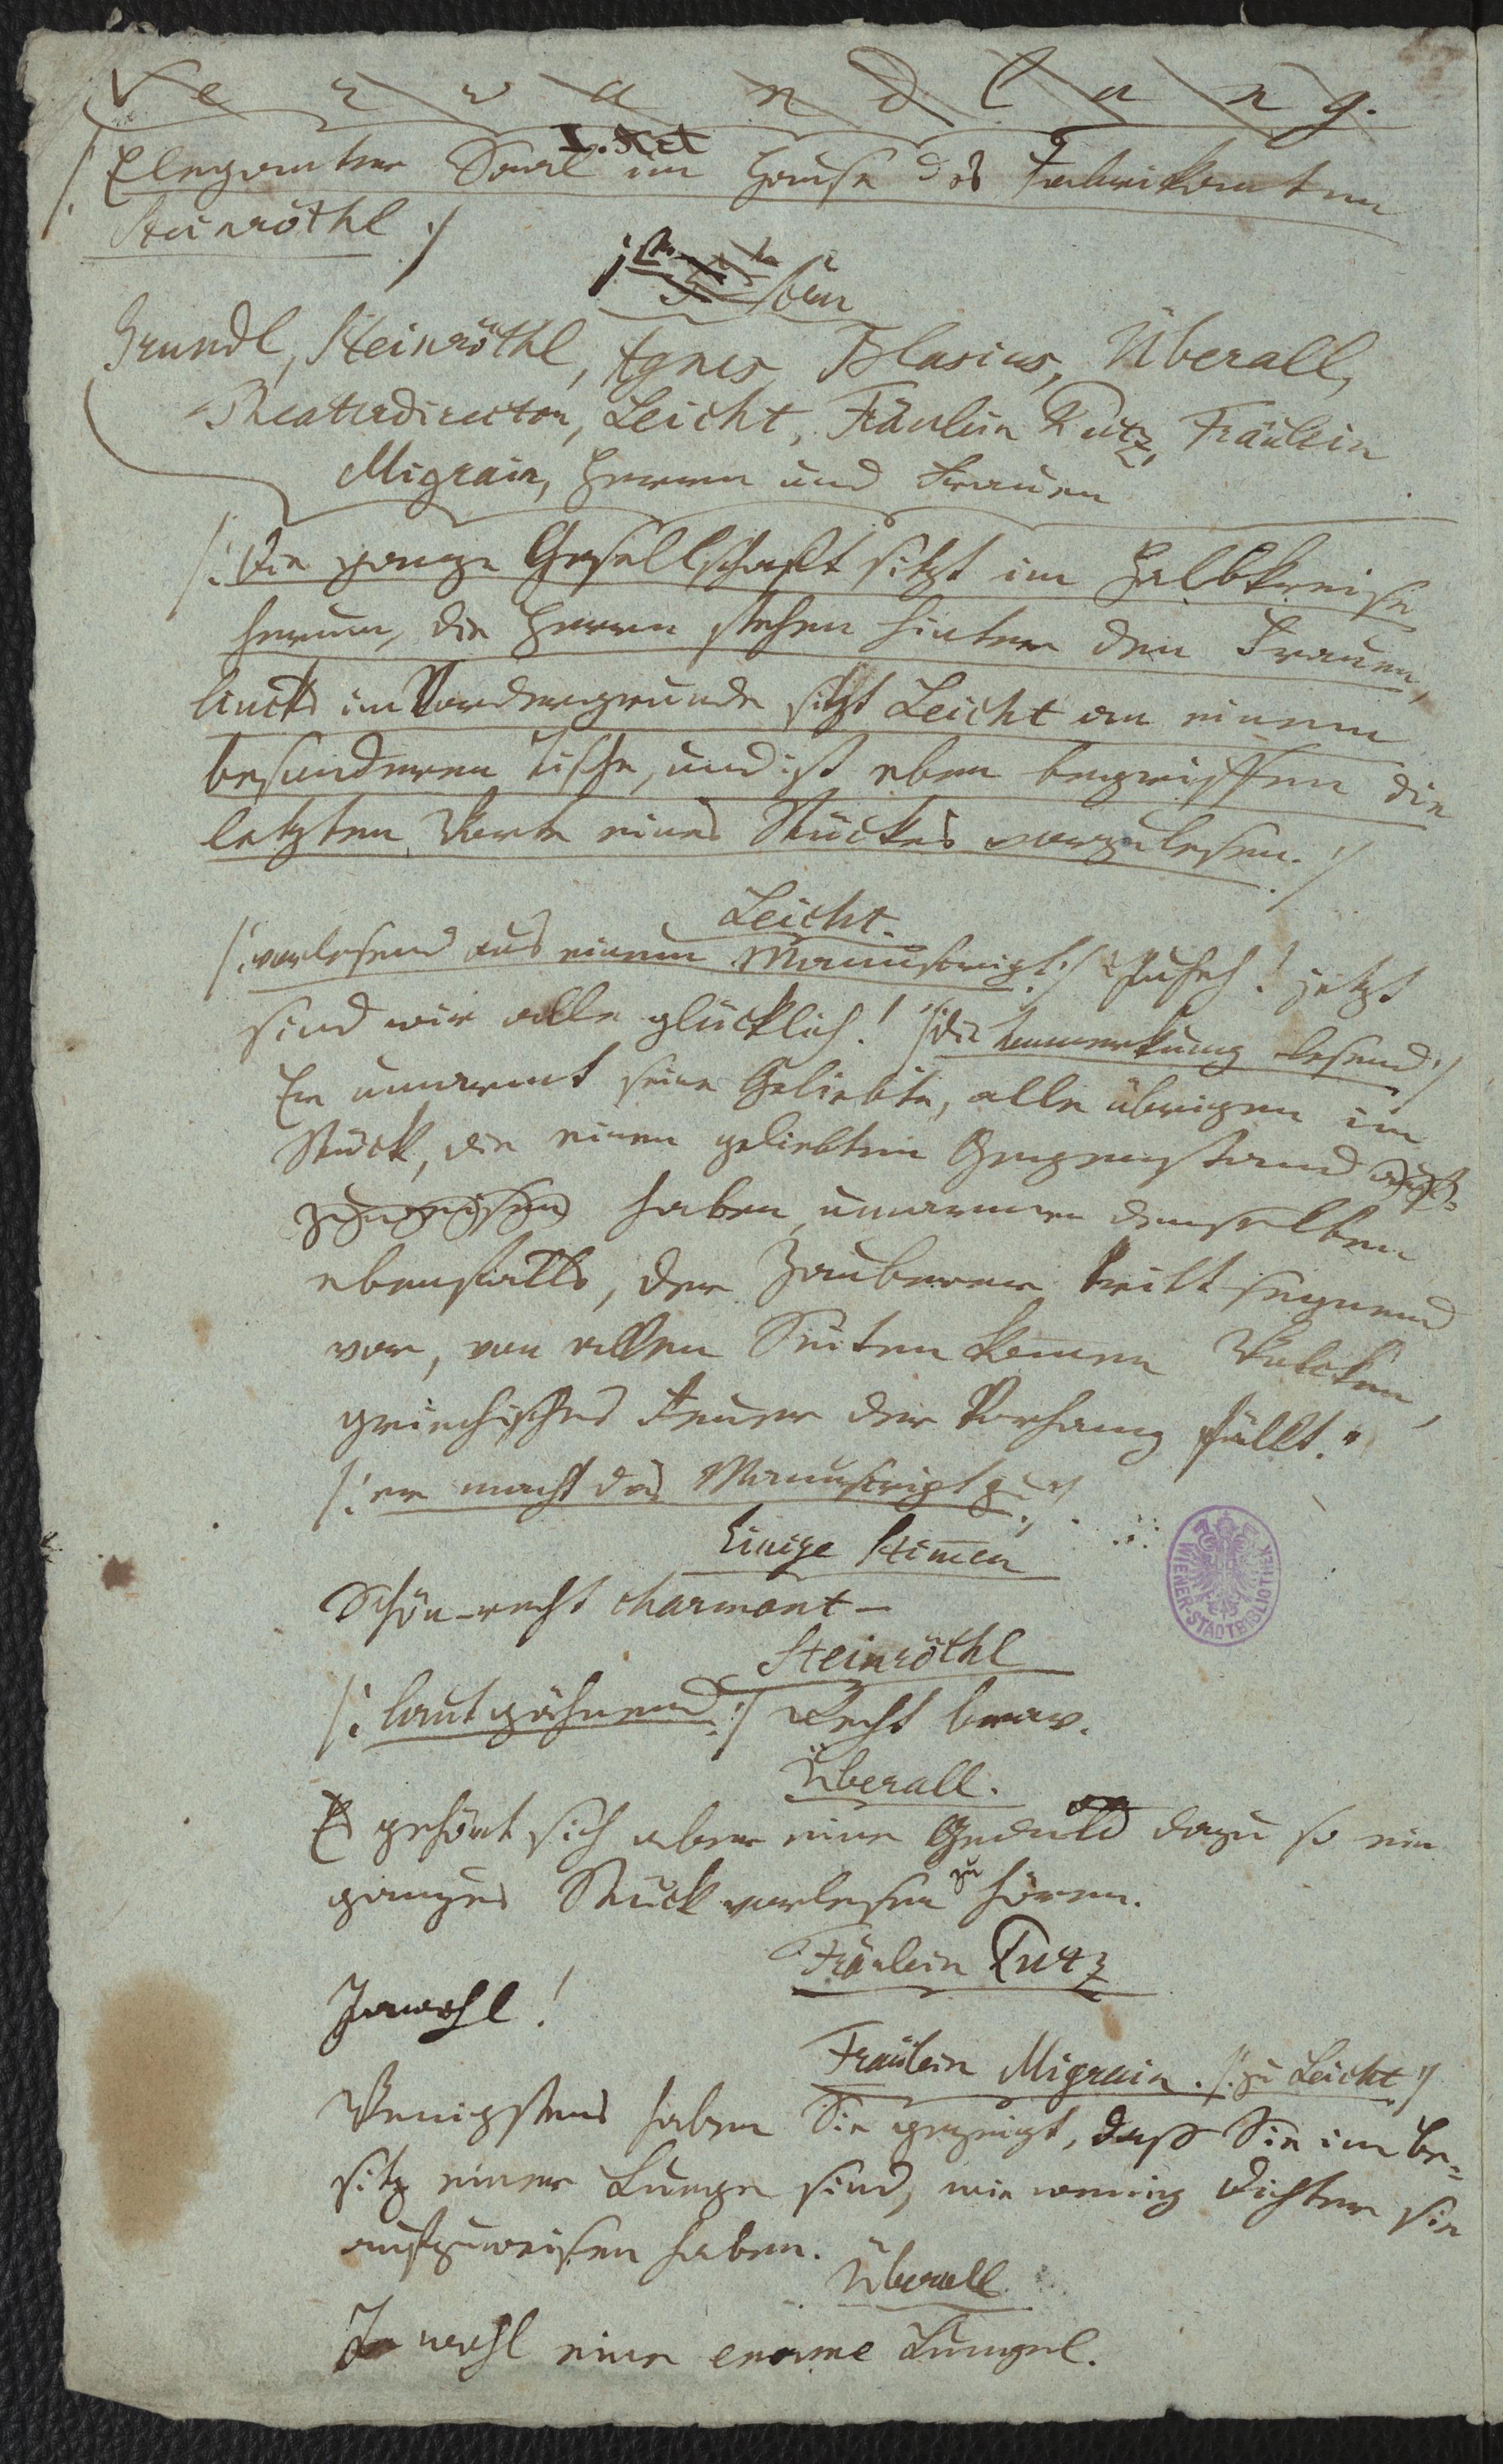 Verwandlung.
I. Act
/: Eleganter Saal im Hause des Fabrikanten
Steinröthl :/
1te Scen
Grundl, Steinröthl, Agnes, Blasius, Überall,
Theaterdirector, Leicht, Fräulein Putz, Fräulein
Migrain, Herren und Frauen
/: Die ganze Gesellschaft sitzt im Halbkreise
herum, die Herrn stehen hinter den Frauen,
lincks im Vordergrunde sitzt Leicht an einem
besonderen Tische, und ist eben begriffen die
letzten Worte eines Stückes vorzulesen. :/
Leicht.
/: vorlesend aus einem Manuscript :/ "Juheh! jetzt
sind wir alle glücklich!" /: die Anmerkung lesend :/
Er umarmt seine Geliebte, alle übrigen im
Stück, die einen geliebten Gegenstand auf-
zuweisen haben, umarmen denselben
ebenfalls, der Zauberer tritt segnend
vor, von allen Seiten kommen Wolcken,
griechisches Feuer der Vorhang fällt."
/: er macht das Manuscript zu :/
Einige Stimen
Schön – recht charmant –
Steinröthl
/: laut gähnend :/ Recht brav.
Überall.
Es gehört sich aber eine Geduld dazu so ein
ganzes Stück vorlesen zu hören.
Fräulein Putz
Jawohl!
Fräulein Migrain. /: zu Leicht :/
Wenigstens haben Sie gezeigt, daß Sie im Be-
sitz einer Lunge sind, wie wenig Dichter sie
aufzuweisen haben.
Überall
Ja wohl eine enorme Lungel.
WIENER-STADTBIBLIOTHEK